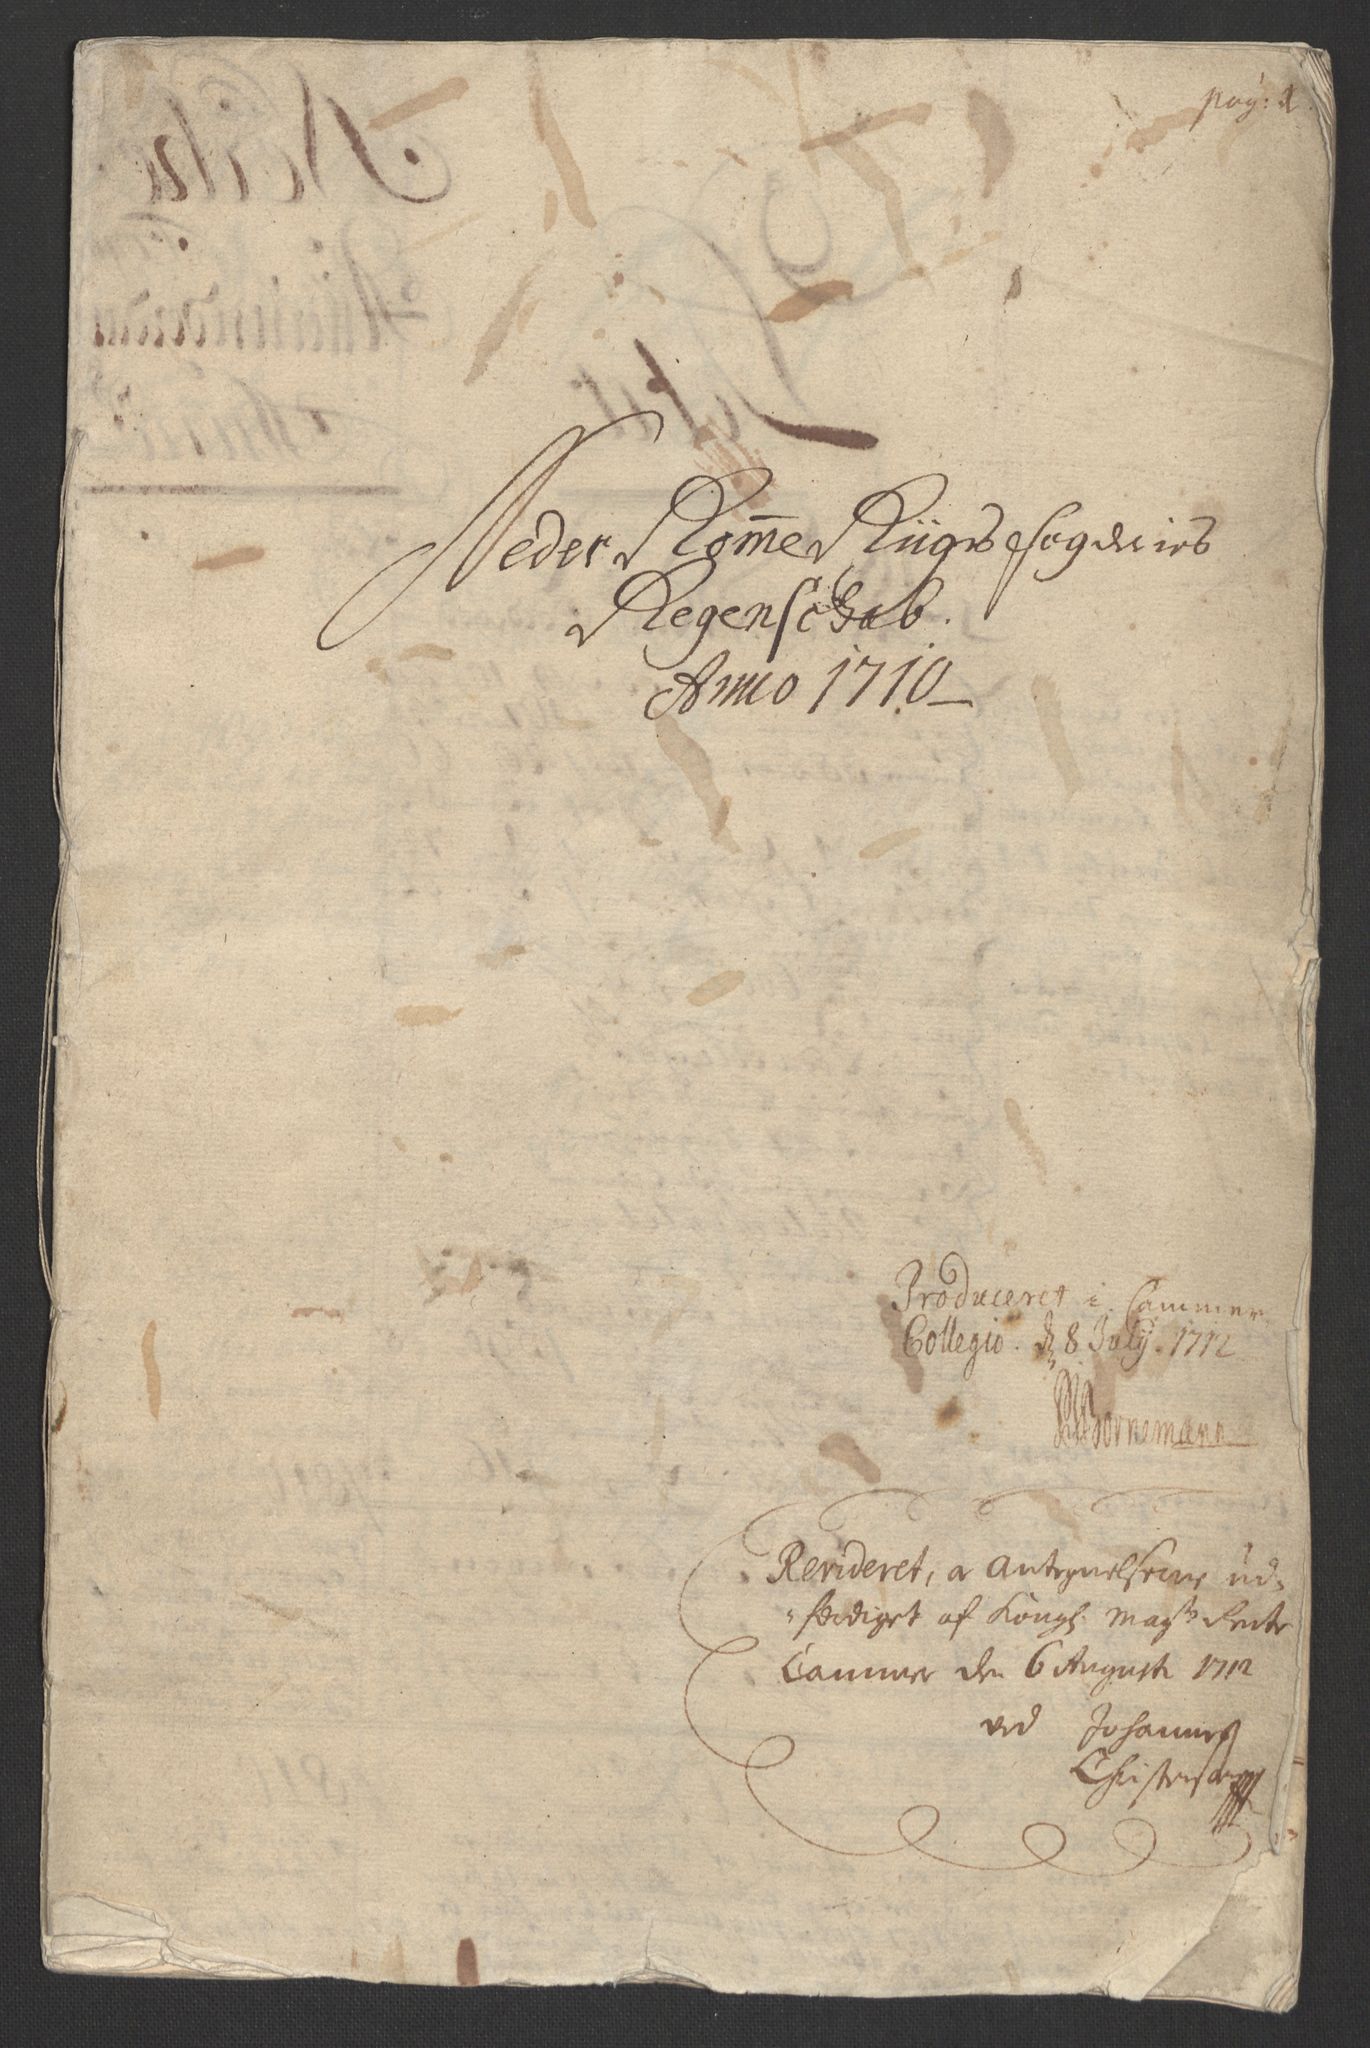 pag: 1
Neder Rom̄e Riiges fogderies
Regenschab.
Anno 1710
Produceret i Cammer
Collegio. d. 8 July. 1712
Bornemann
Revideret, oc Antegnelserne ud-
-stediget af Kongl. May.ts Rente
Cammer den 6 Augusti 1712
ved Johannes
Christensen